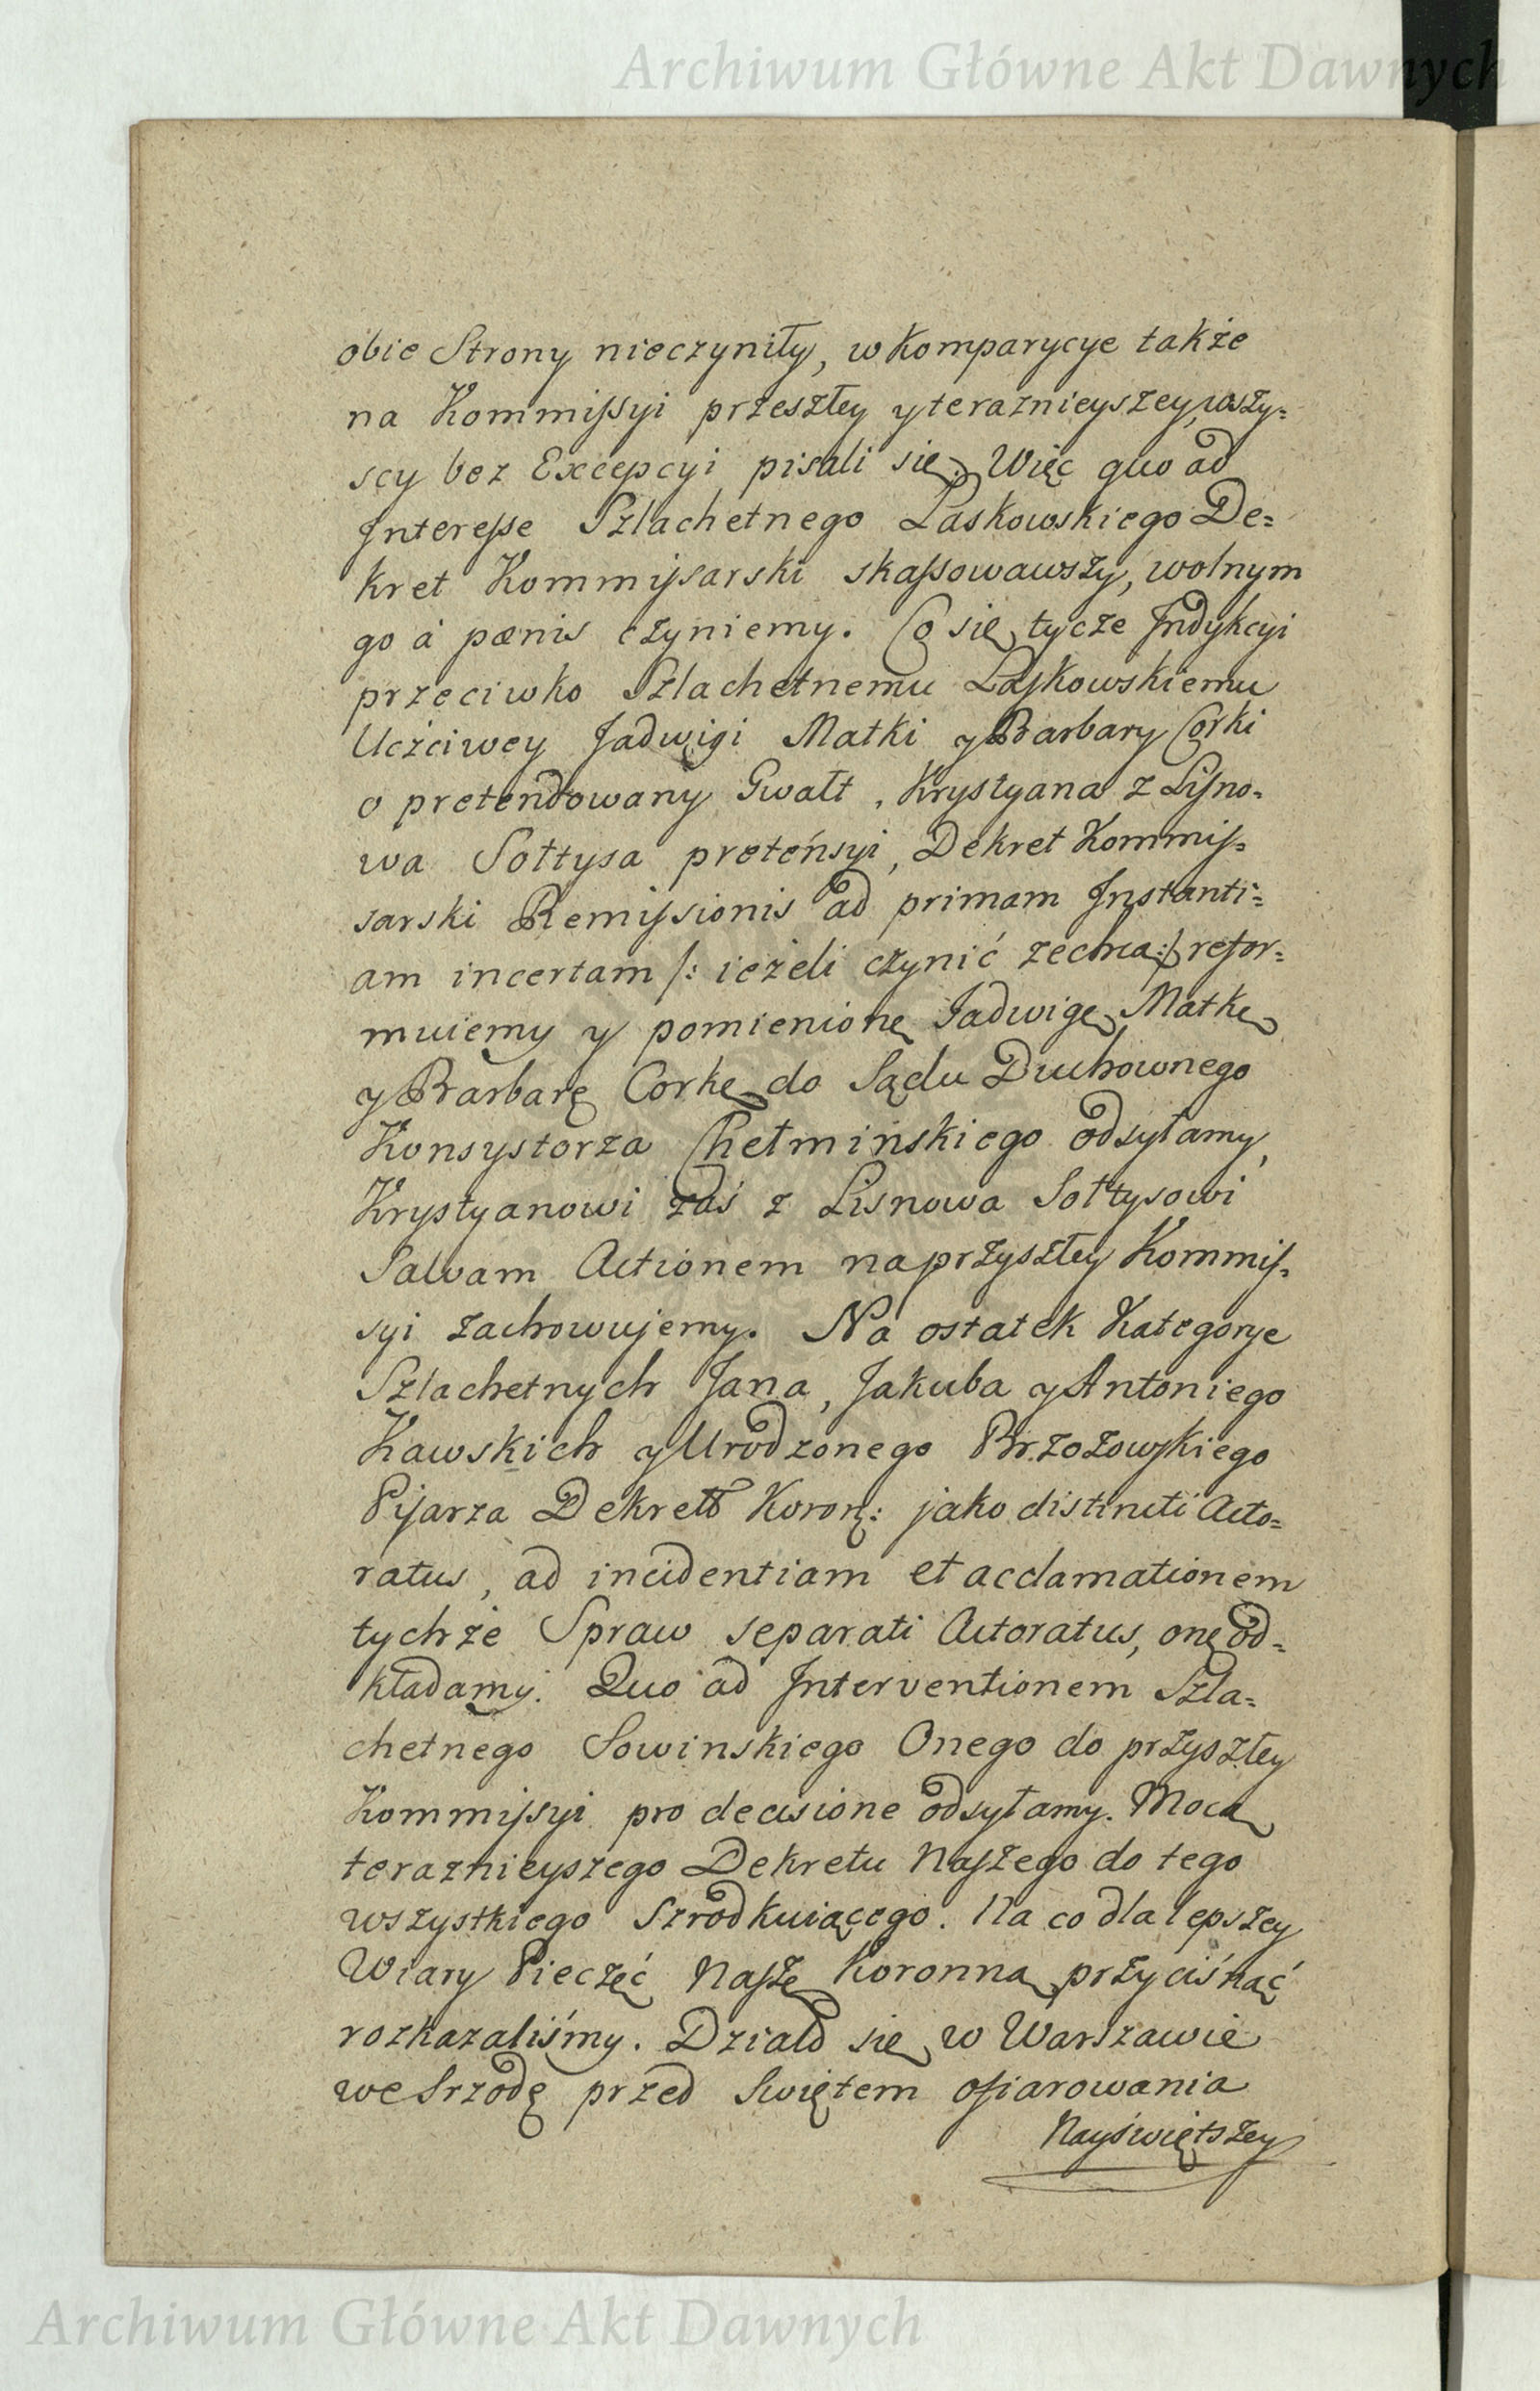 Archiwum Główne Akt Dawnych
obie Strony nieczyniły, w Komparycye także
na Kommissyi przeszłey y teraznieyszey, wszy=
scy bez Excepcyi pisali się. Więc quo ad
Interesse Szlachetnego Laskowskiego De=
kret Kommissarski skassowawszy, wolnym
go à pœnis czyniemy. Co się tycze Indykcyi
przeciwko Szlachetnemu Laskowskiemu
Uczciwey Jadwigi Matki y Barbary Corki
o pretendowany Gwałt, Krystyana z Lisno=
wa Sołtysa pretensyi, Dekret Kommis=
sarski Remissionis ad primam Instanti=
am incertam /: ieżeli czynić zechca :/ refor=
muiemy y pomienionę Jadwigę Matkę
y Barbarę Corkę do Sądu Duchownego
Konsystorza Chełminskiego odsyłamy,
Krystyanowi zaś z Lisnowa Sołtysowi
Salvam Actionem na przyszłey Kommis=
syi zachowujemy. Na ostatek Kategorye
Szlachetnych Jana, Jakuba y Antoniego
Kawskich y Urodzonego Brzozowskiego
Pisarza Dekretò Koron: jako distincti Acto=
ratus, ad incidentiam et acclamationem
tychże Spraw separati Actoratus, onę od=
kładamy. Quo ad Interventionem Szla=
chetnego Sowinskiego Onego do przyszłey
Kommissyi pro decisione odsyłamy. Mocą
teraznieyszego Dekretu Naszego do tego
wszystkiego szrodkuiącego. Na co dla lepszey
Wiary Pieczęć Naszę Koronną przycisnąć
rozkazaliśmy. Działo się w Warszawie
we Srzodę przed Swiętem ofiarowania
Nayświętszey
Archiwum Główne Akt Dawnych